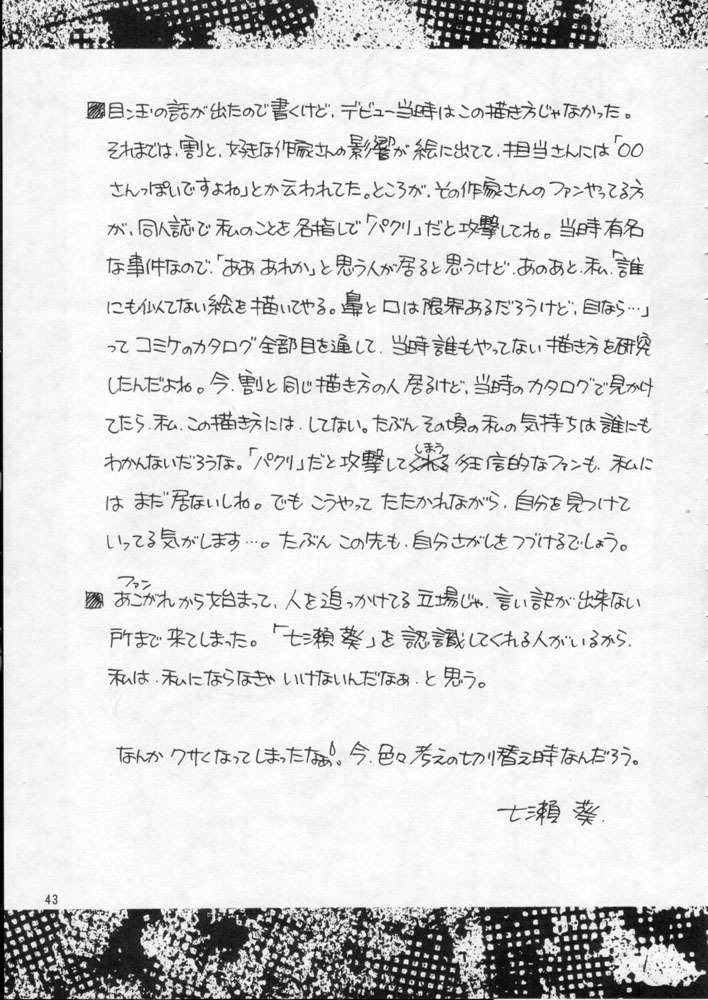 目ン玉の話が出たので書くけど、デビュー当時はこの描き方じゃなかった。
それまでは、割と、好きな作家さんの影響が絵に出てて、担当さんには「○○
さんっぽいですよね」とか云われてた。ところが、その作家さんのファンやってる方
が、同人誌で私のことを名指しで「パクリ」だと攻撃してね。当時有名
な事件なので、「ああ あれか」と思う人が居ると思うけど、あのあと、私、「誰
にも似てない絵を描いてやる。鼻と口は限界あるだろうけど、目なら…」
って コミケのカタログ全部目を通して、当時誰もやってない描き方を研究
したんだよね。今、割と同じ描き方の人居るけど、当時のカタログで見かけ
てたら、私、この描き方には、してない。たぶん その頃の私の気持ちは誰にも
わかんないだろうな。「パクリ」だと攻撃してしまう狂信的なファンも、私に
は まだ居ないしね。でも こうやって たたかれながら、自分を見つけて
いってる気がします…。たぶん この先も、自分さがしをつづけるでしょう。
ファン
あこがれから始まって、人を追っかけてる立場じゃ、言い訳が出来ない
所まで来てしまった。「七瀬 葵」を認識してくれる人がいるから、
私は、私にならなきゃ いけないんだなぁ、と思う。
なんか クサくなってしまったなぁ。今、色々考えの切り替え時なんだろう。
七瀬 葵.
43